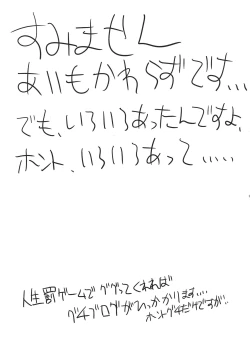 すみません
あいもかわらずです…
でも、いろいろあったんですよ、
ホント、いろいろあって……
人生罰ゲームでググってくれれば
グチブログがひっかかります….
ホントグチだけですが..